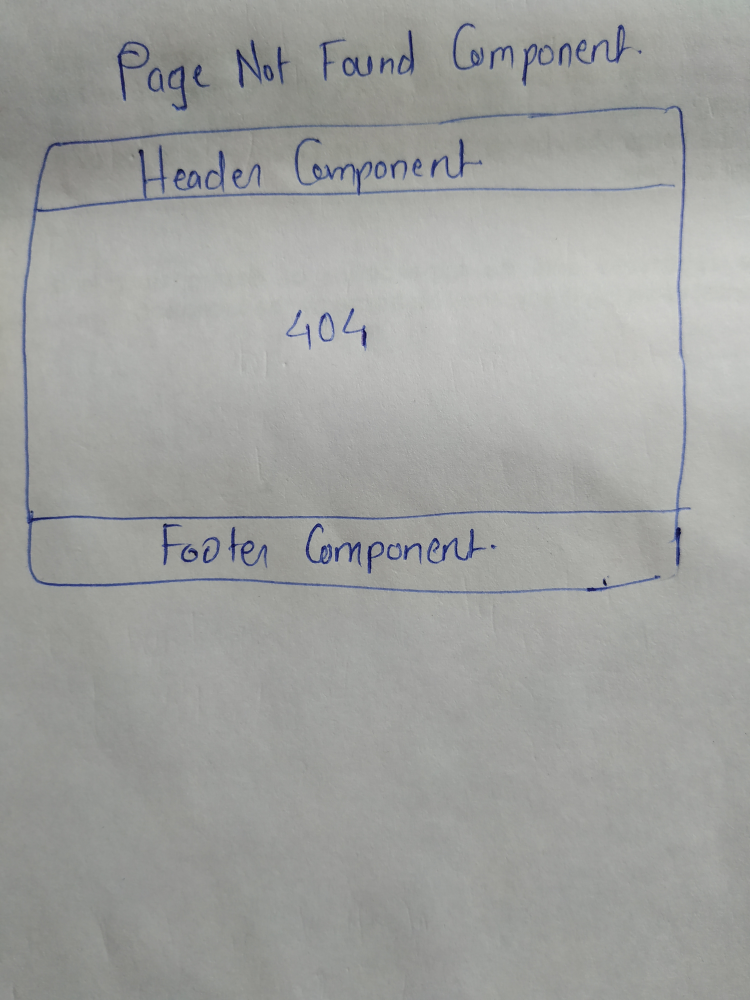 Page Not Found Component.
Header Component
404
Footer Component.